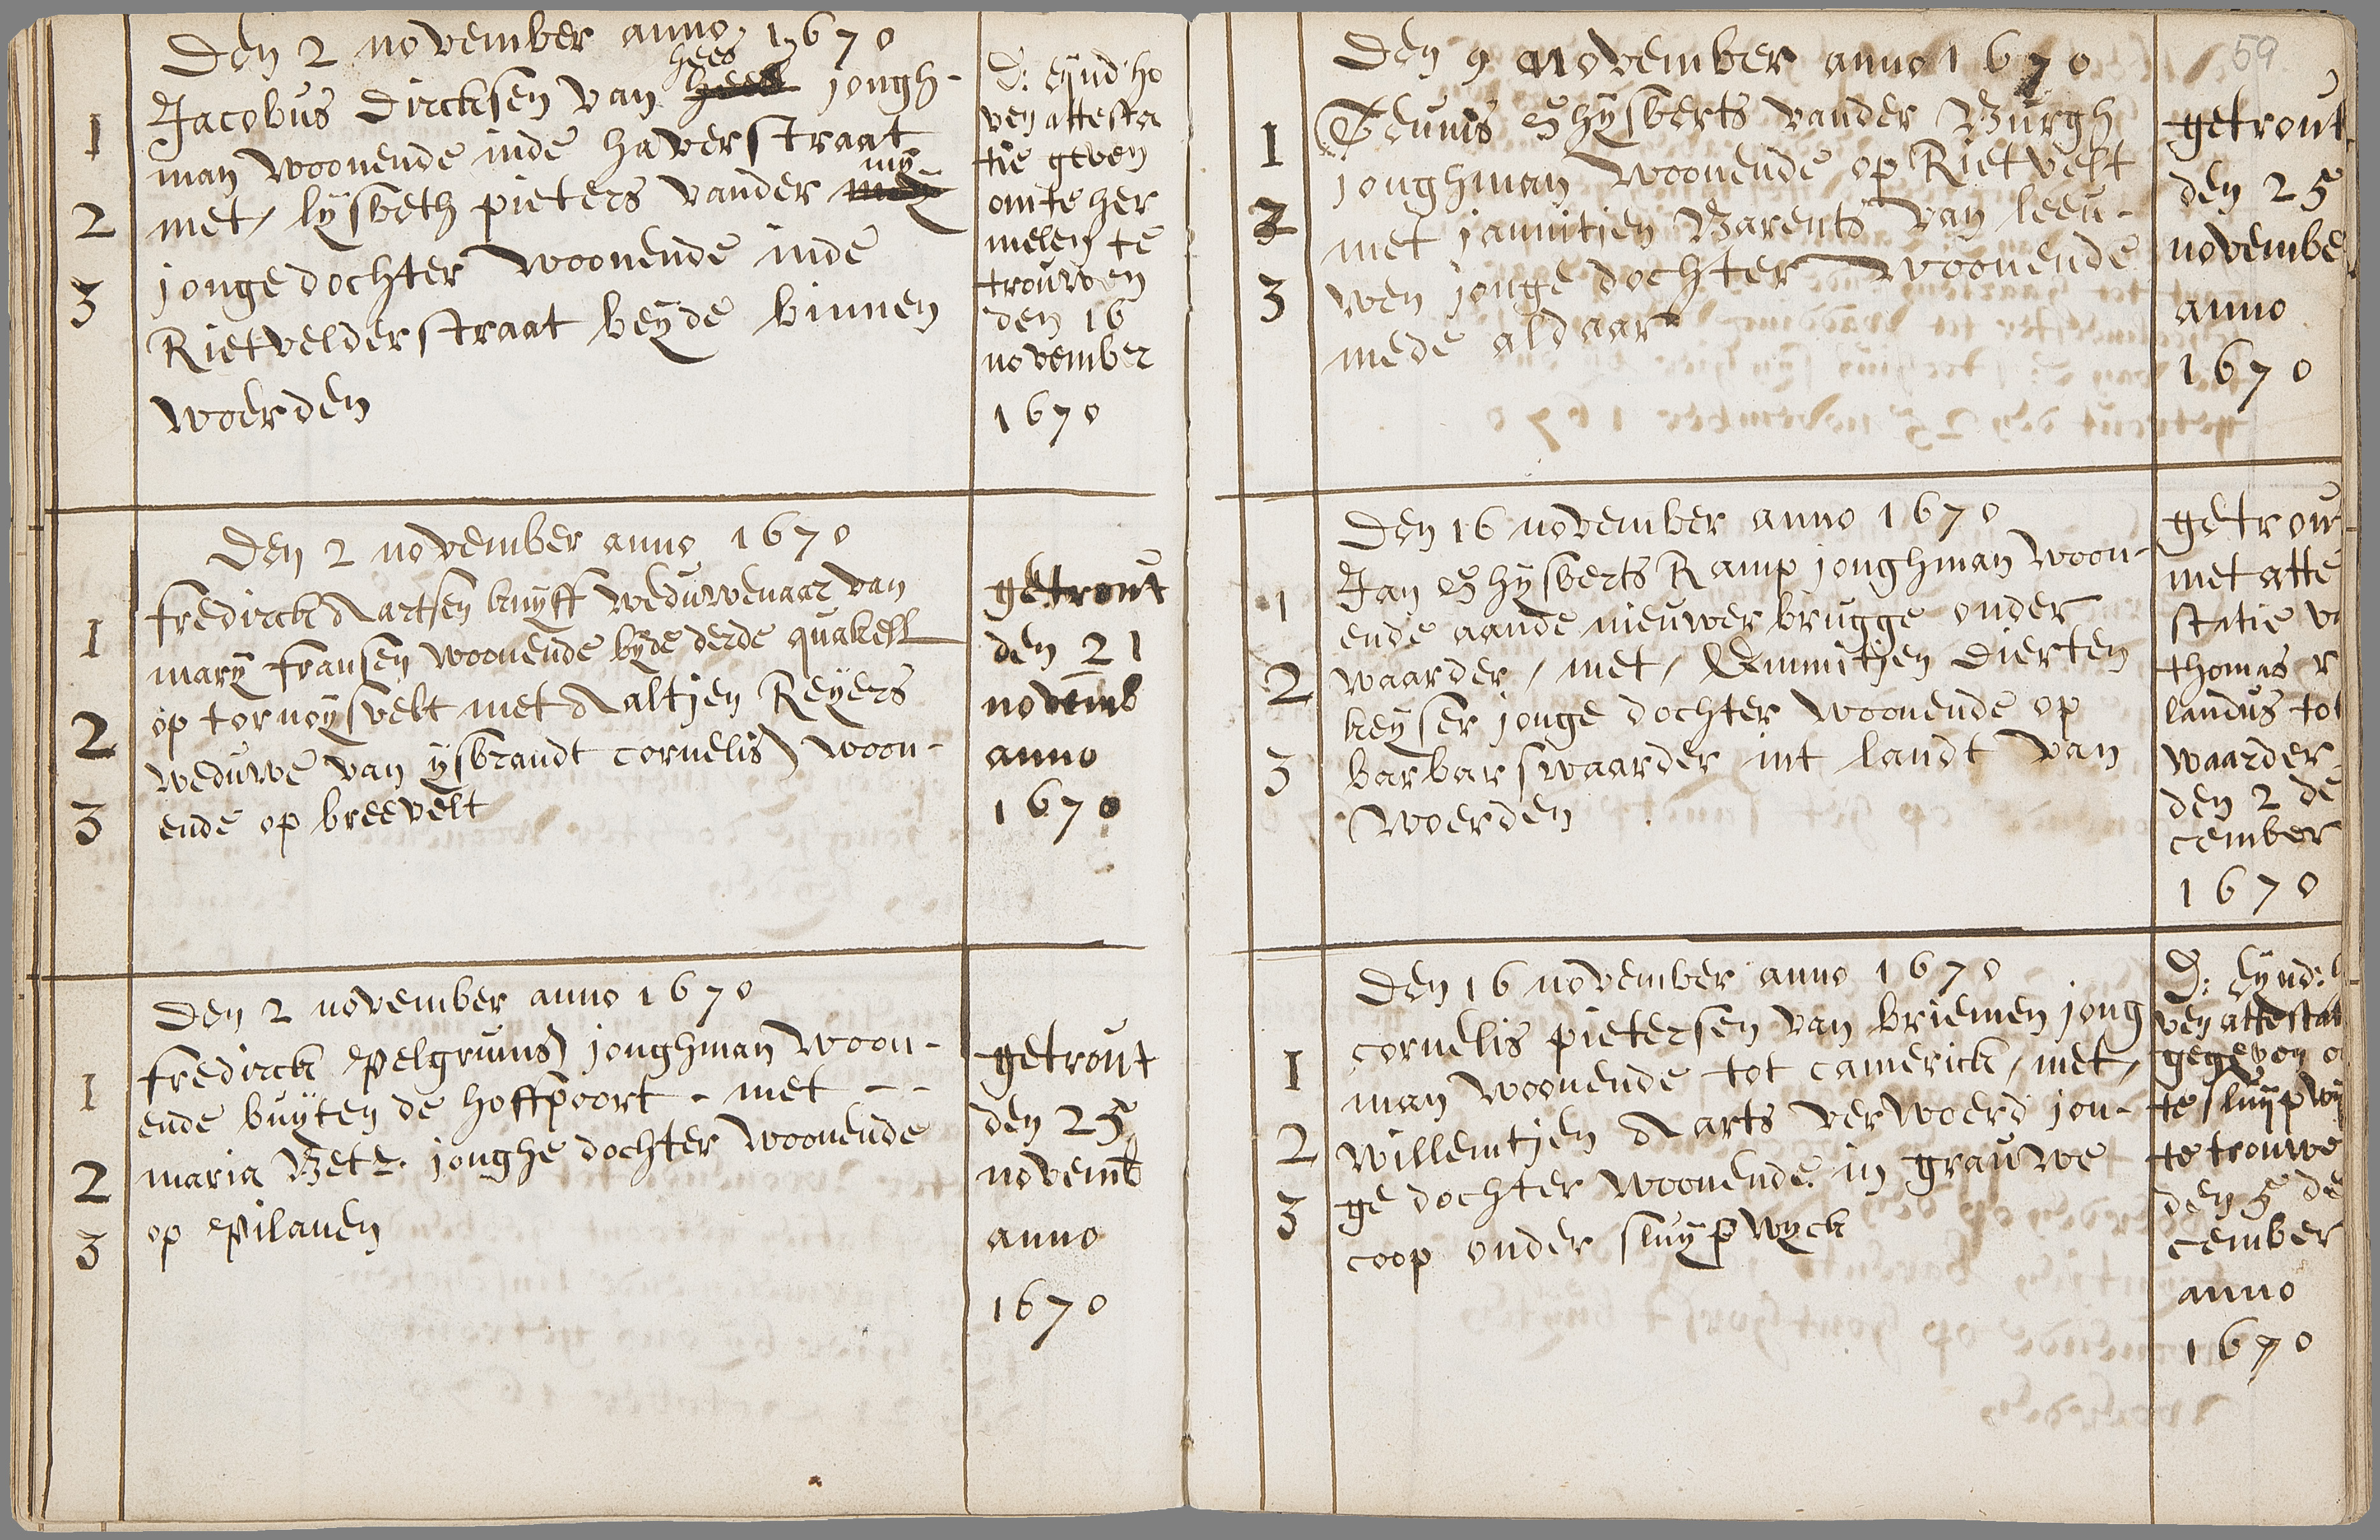 Den 2 november anno 1670
hees
Jacobus Dircksen van jongh-
man woonende inde haverstraat
mij
met / lijsbeth pieters vander
jonge dochter woonende inde
Rietvelderstraat beijde binnen
woerden
1
2
3
D: Eijnd'ho
ven attesta
tie geven
om te her
melen te
trouwen
den 16
november
1670
Den 2 november anno 1670
fredirck Aartsen kuijff weduwenaar van
marij fransen woonende bijde derde quakell
op tornoijsvelt met Aaltjen Reijers
weduwe van ijsbrandt cornelis woon-
ende op breevelt
1
2
3
getrout
den 21
novemb
anno
1670
Den 2 november anno 1670
fredirck Pelgrums jonghman woon-
ende buijten de hoffpoort - met - -
maria Bett. jonghe dochter woonende
op Pilanen
1
2
3
getrout
den 25
novemb
anno
1670
59
Den 9 november anno 1670
Teunis Ghijsberts vander Burgh
jonghman woonende op Rietvelt
met jannitjen Barents van leeu-
wen jonge dochter woonende
mede aldaar
1
2
3
getrout
den 25
novembe
anno
1670
Den 16 november anno 1670
Jan Ghijsberts Ramp jonghman woon-
ende aande nieuwerbrugge onder
waarder / met / Emmitjen Dierten
keijser jonge dochter woonende op
barbarswaarder int landt van
Woerden
1
2
3
getrou
met atte
statie v
thomas r
landus tot
waarder
den 2 de
cember
1670
Den 16 november anno 1670
cornelis pietersen van briemen jong
man woonende tot camerick / met /
willemtjen Aarts verwoerd jon-
ge dochter woonende in grauwe
coop onder sluijpwyck
1
2
3
D: Eijnd:h
ven attestat
gegeven o
te sluijpwij
te trouwe
den 5 de
cember
anno
1670